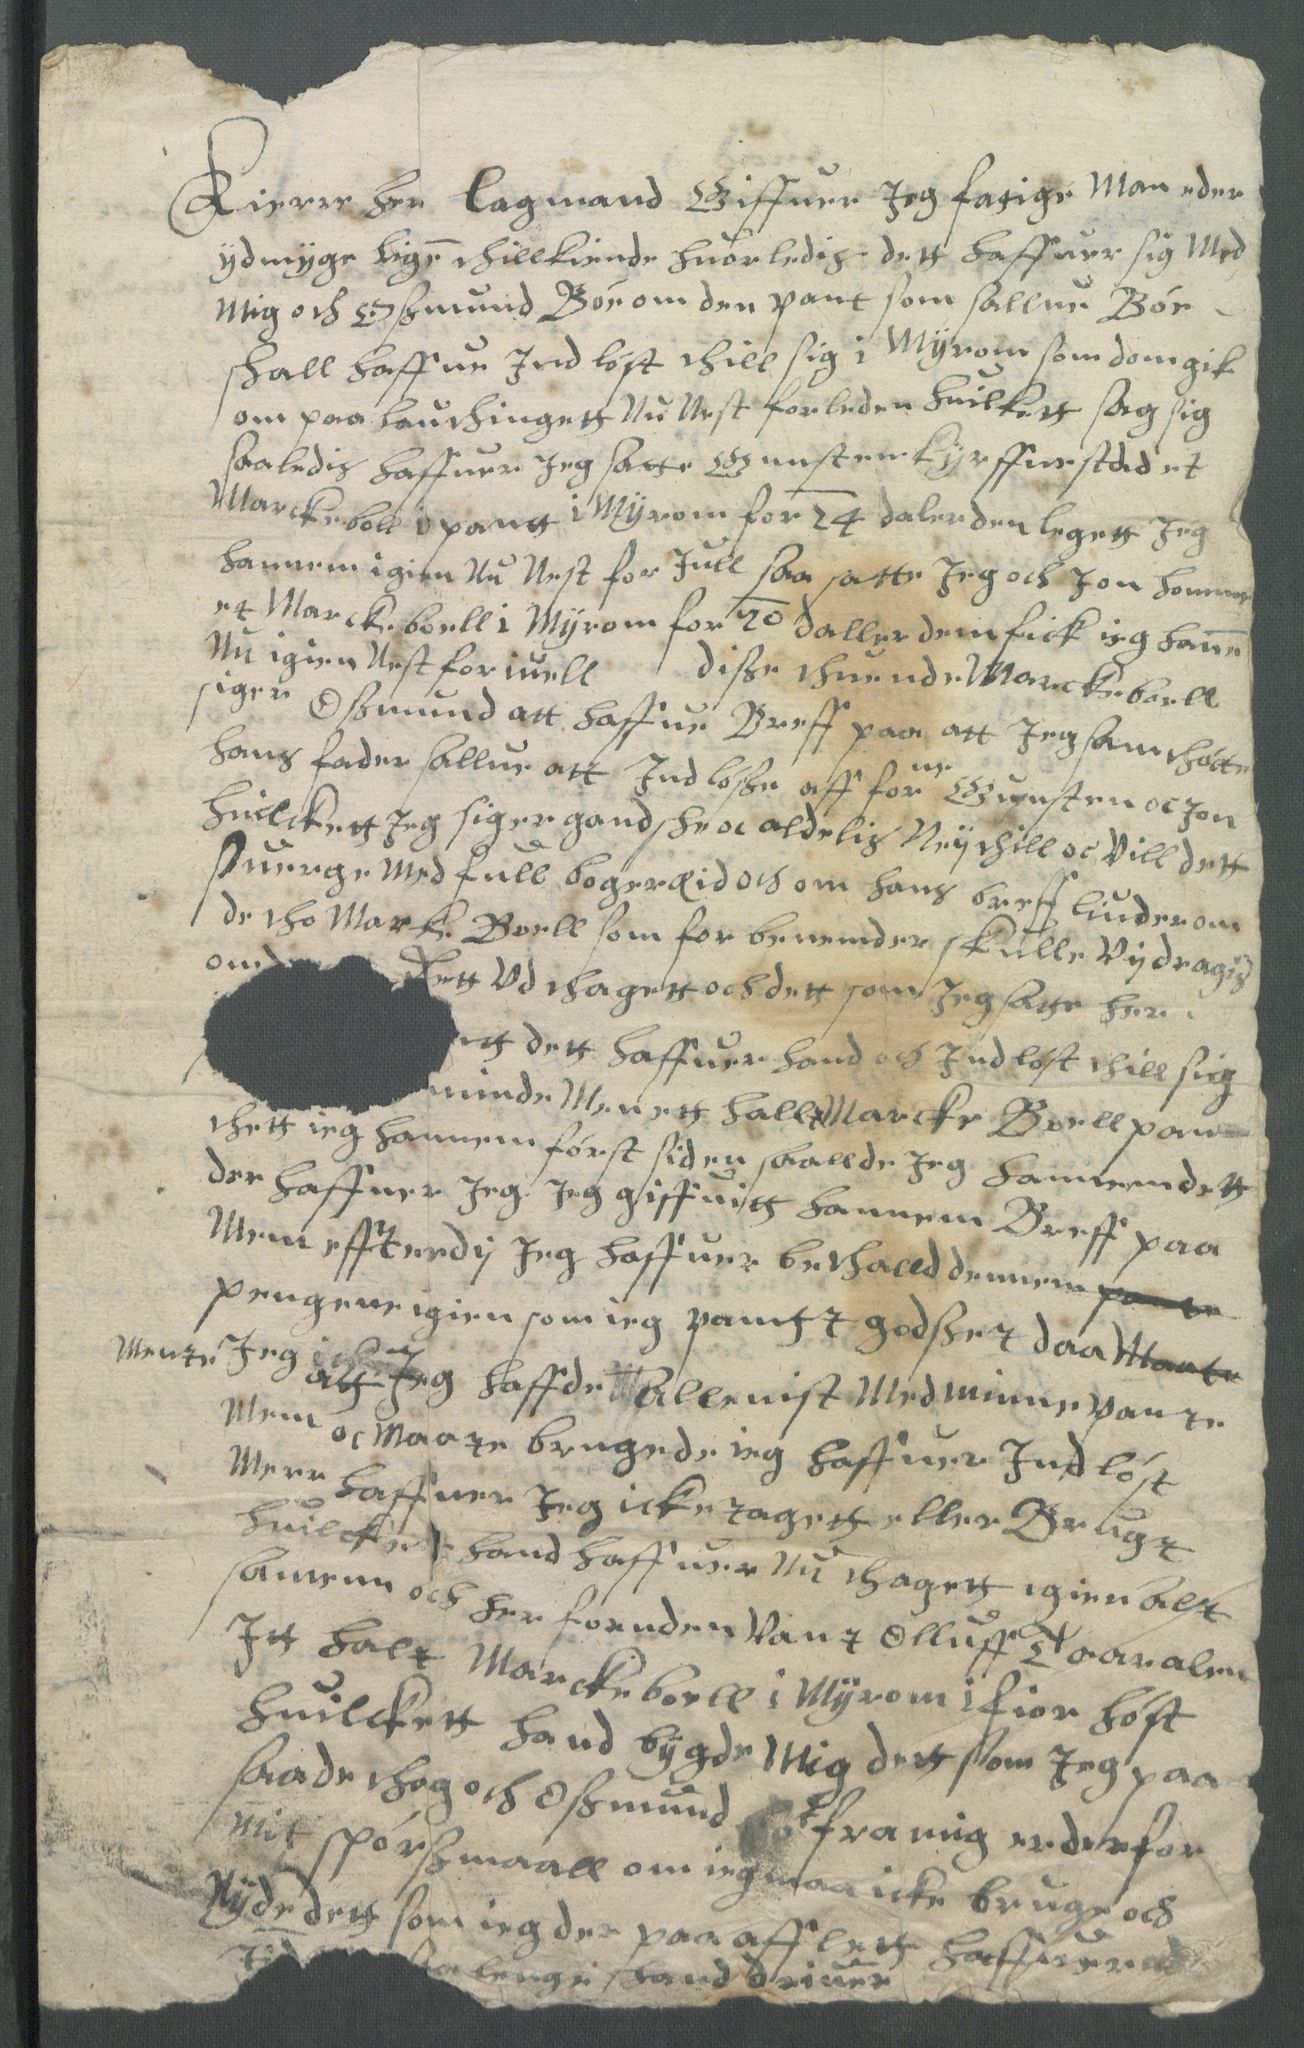 Kierre her Lagmand Giffuer Jeg fatige Man eder
ydmyge ligē thillkiende huorledis dett haffuer sig Med
Mig och Oßmund Böe om den pant som sallue Böe
shall haffue Jnd löst thill sig i Myrom som dom gik
om paa lauthingett Nu Nest forleden huilkett sag sig
saaledis haffuer Jeg satte Gunsten Kyrffuestad et
Marckeboll i pantt i Myrom for 24 daler den legett Jeg
hannem igien Nu Nest for Jull saa satte Jeg och Jon homme
et Marckeboell i Myrom for 20 daller dem fick ieg hanē
Nu igien Nest for iuell diße thuende Marckeboell
siger Oßmund att haffue Breff paa att Jeg samthöcte
hans fader sallue att Jnd löße aff forne Gunsten oc Jon
huilckett Jeg siger gandshe oc aldelis Ney thill oc Vill dett
suerge Med full boger Eid och om hans breff liuder om
de tho Marke Boell som for benemder skulle Vydragis
om dett Vd thagett och dett som Jeg satte her
ett dett haffuer hand och Jnd löst thill sig
minde Men ett hallt Marcke Boell pan
thett ieg hannem först siden saallde Jeg hannem dett
der haffuer Jeg Jeg giffuitt hannem Breff paa
Men effterdy Jeg haffuer bethalld dennem
pengene igien som ieg pantt godßet daa
Mente Jeg att Jeg haffde allenist Med minne Vante
Mem oc Maate brugede ieg haffuer Jnd löst
Merr haffuer Jeg icke tagett eller Brugt
huilcke hand haffuer Nu thagett igien alt
samenn och her foruden Vant Olluff Taaralen
Jtt halt Marckeboell i Myrom i fior höst
huilckett hand bygde Mig dett som Jeg paa
saade thog och Oßmund fra mig er derfor
Mit spörßmaall om ieg maa icke bruge och
Nyde dett som ieg der paa afflett haffuer
lenge hand driuer